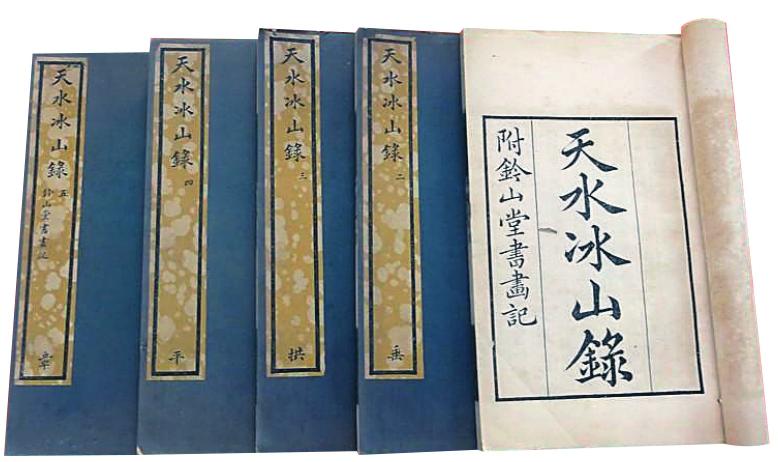 天水冰山錄
附鈐山堂書畫記
天水冰山錄 二
垂
天水冰山錄 三
拱
天水冰山錄 四
平
天水冰山錄 五
鈐山堂書畫記
章